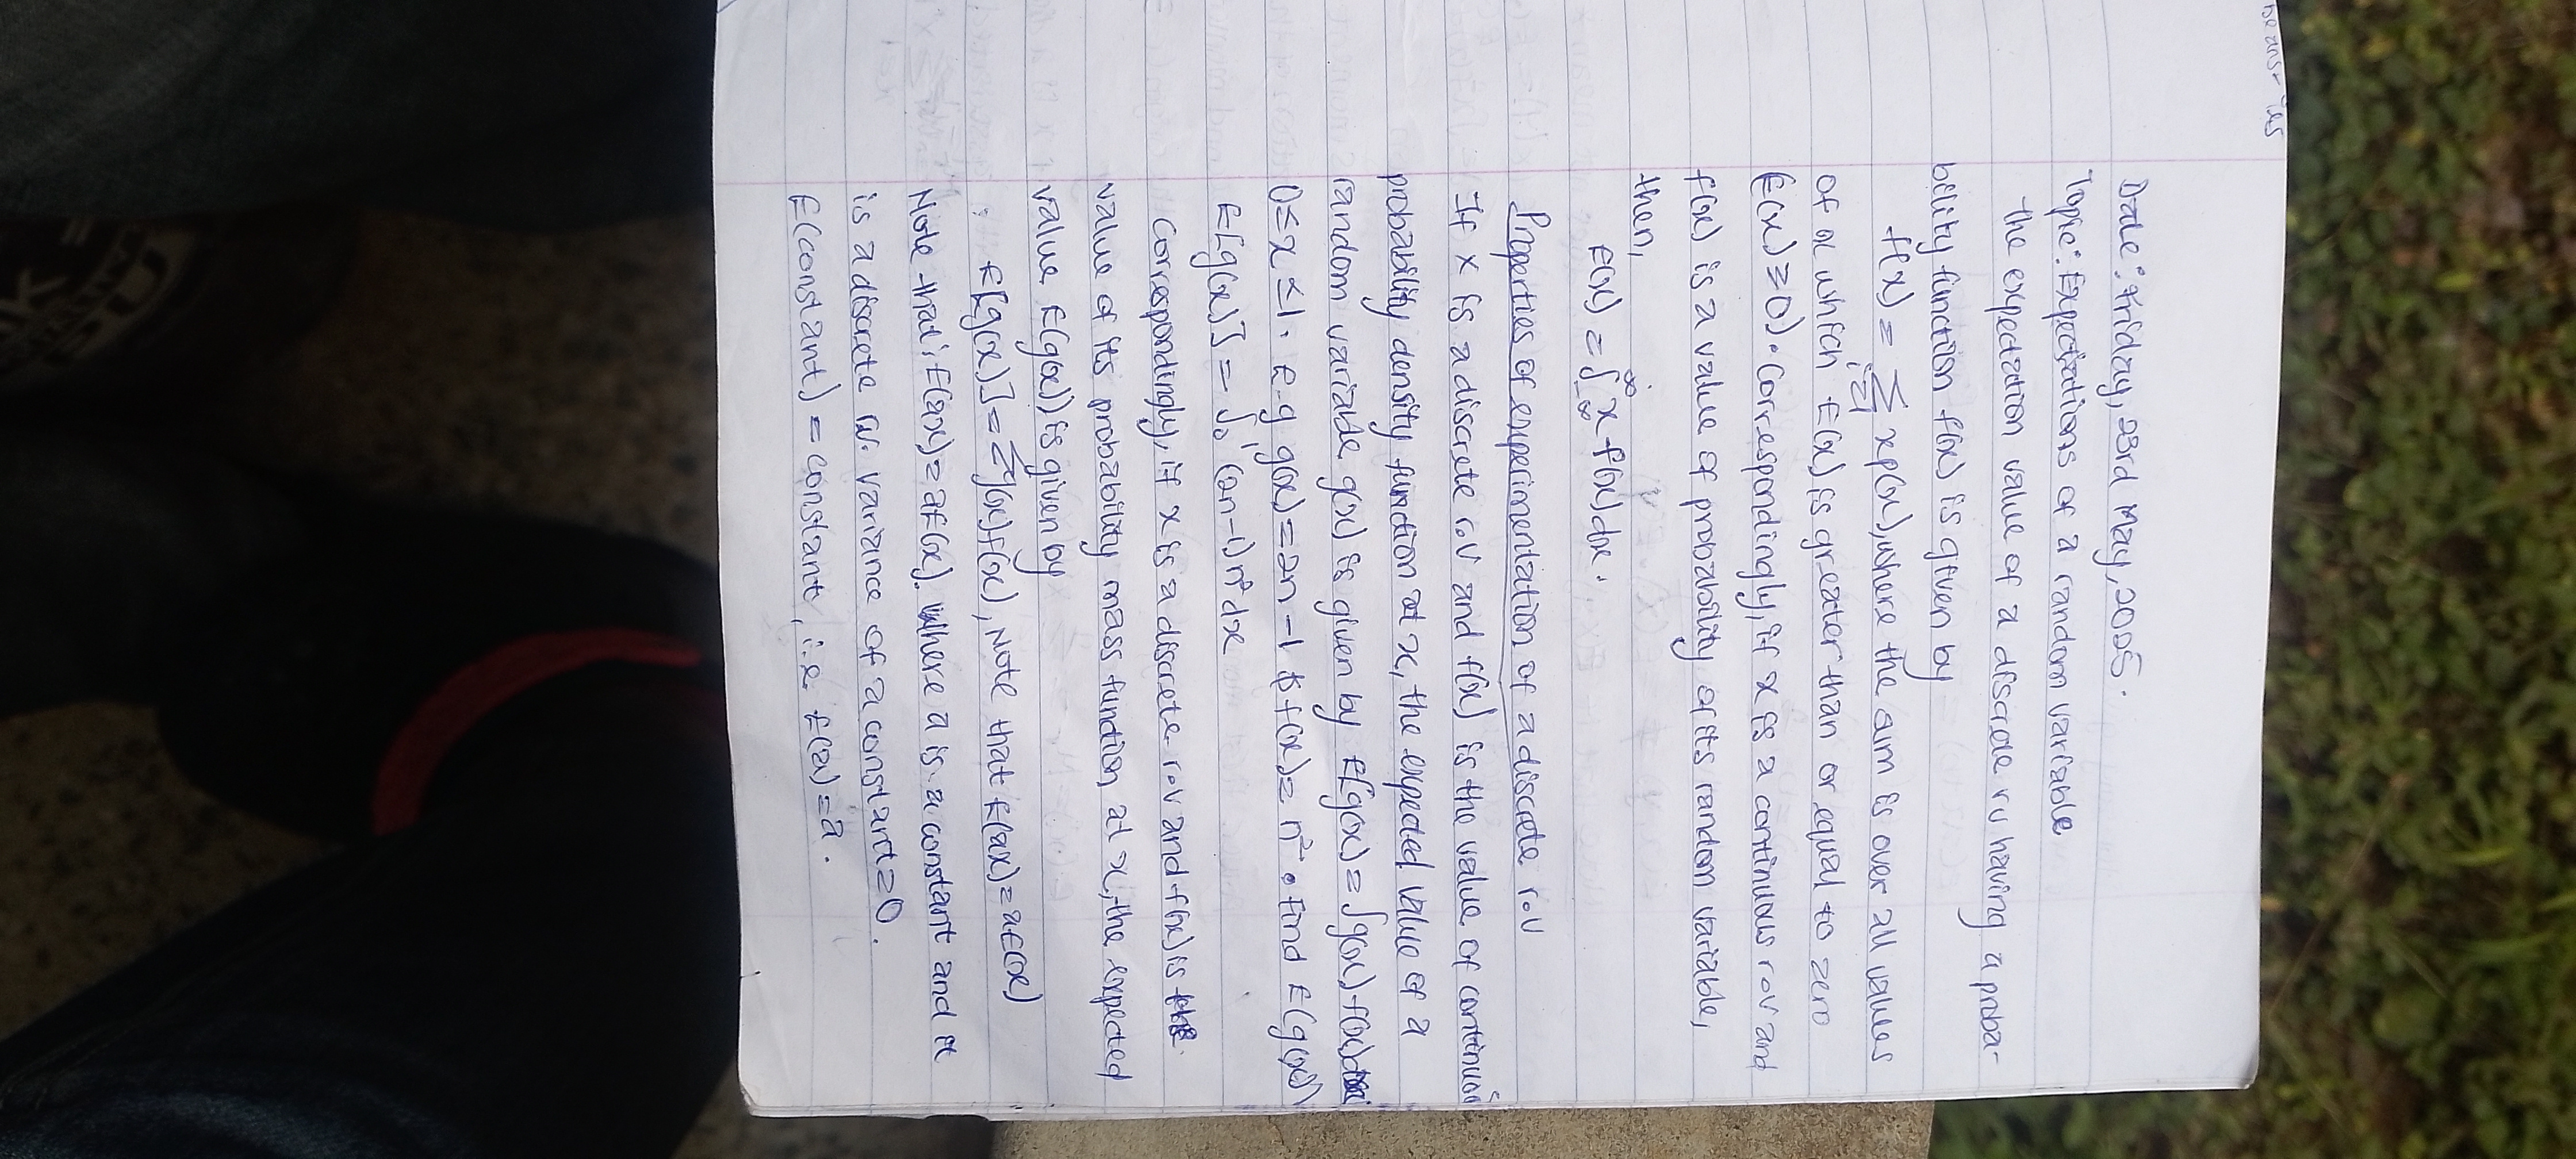 Date: Friday, 23rd May, 2025.
Topic: Expectations of a random variable
The expectation value of a discrete rv having a proba-
bility function f(x) is given by
f(x) = Σ i=1 x p(x), where the sum is over all values
of x which E(x) is greater than or equal to zero
(E(x) ≥ 0). Correspondingly, if x is a continuous r.v and
f(x) is a value of probability of its random variable,
then,
E(x) = ∫_{-∞}^{∞} x f(x) dx.
Properties of experimentation of a discrete r.v
If x is a discrete r.v and f(x) is the value of continuos
probability density function at x, the expected value of a
random variable g(x) is given by E[g(x) = ∫g(x) f(x)dx
0 ≤ x ≤ 1. e.g g(x) = 2n - 1 & f(x) = n². Find E(g(x))
E[g(x)] = ∫₀¹ (2n-1) n² dx
Correspondingly, if x is a discrete r.v and f(x) is the
value of its probability mass function at x, the expected
value E(g(x)) is given by
: E[g(x)] = Σg(x) f(x), Note that E(ax) = aE(x)
Note that: E(ax) = aE(x). Where a is a constant and x
is a discrete rv. variance of a constant = 0.
E(constant) = constant, i.e. E(a) = a.